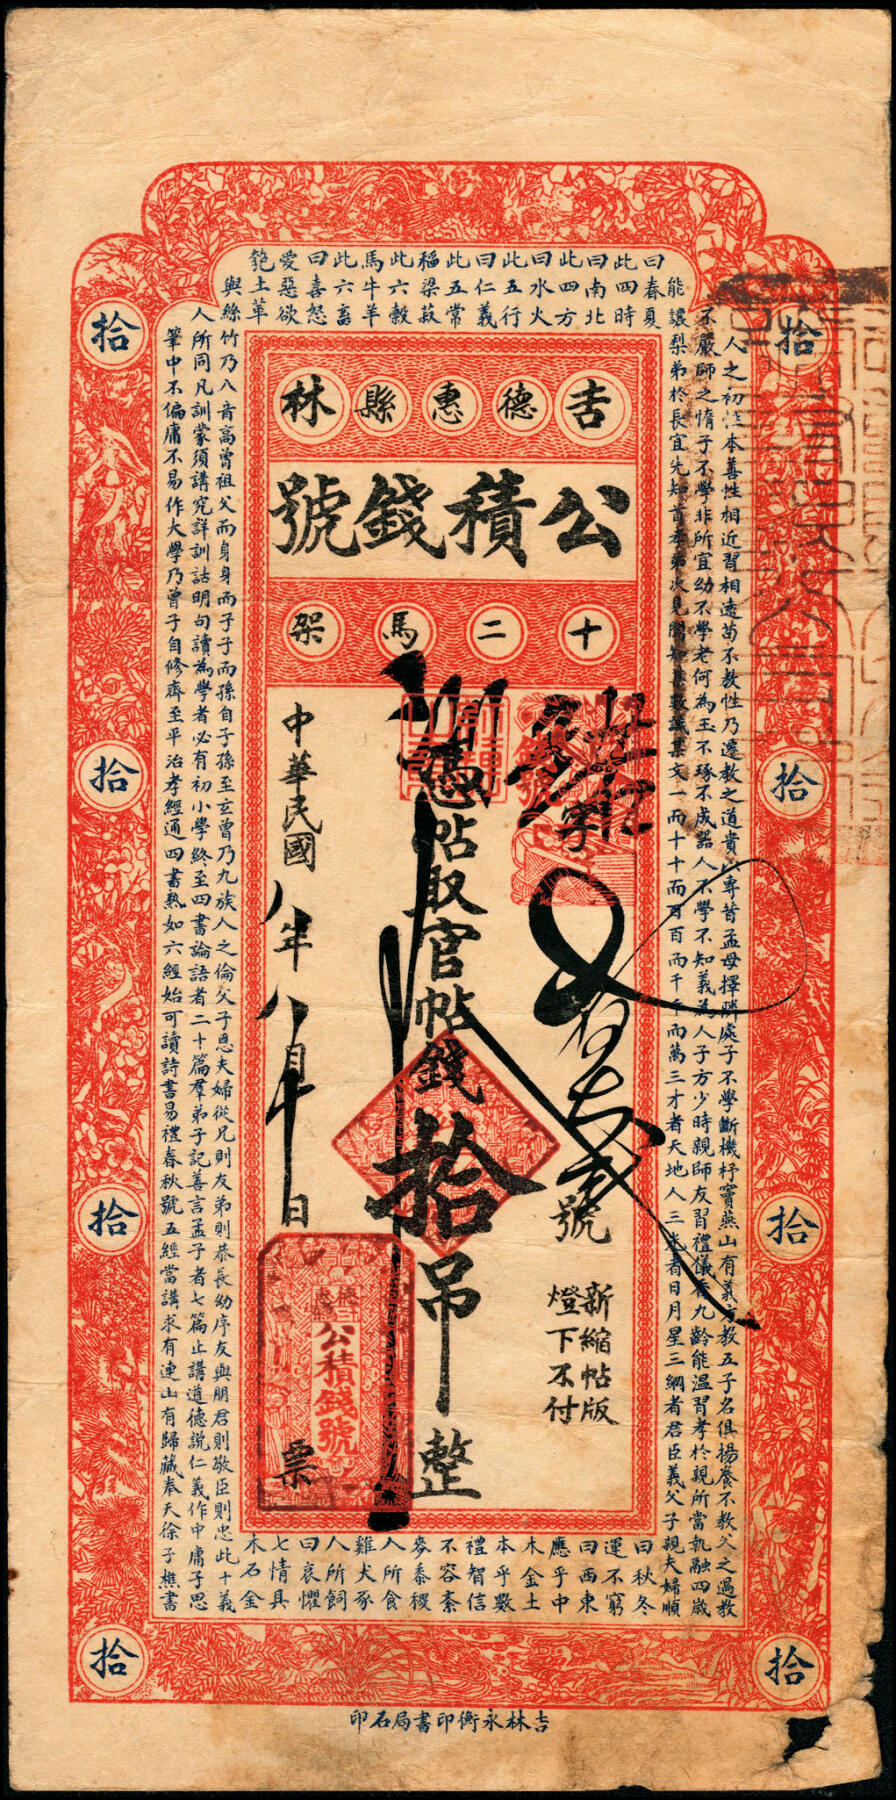 吉德惠縣林
公積錢號
十二馬架
字
號
新縮帖版
燈下不付
憑帖取官帖錢拾吊整
中華民國八年八月十日
票
德惠
公積錢號
拾
拾
拾
拾
拾
拾
拾
拾
人之初性本善性相近習相遠苟不教性乃遷教之道貴以專昔孟母擇隣處子不學斷機杼竇燕山有義方教五子名俱揚養不教父之過教
不嚴師之惰子不學非所宜幼不學老何為玉不琢不成器人不學不知義為人子方少時親師友習禮儀香九齡能溫習孝於親所當執融四歲
能讓梨弟於長宜先知首孝弟次見聞知某數識某文一而十十而百百而千千而萬三才者天地人三光者日月星三綱者君臣義父子親夫婦順
曰春夏
曰秋冬
此四時
運不窮
曰南北
曰西東
此四方
應乎中
曰水火
木金土
此五行
本乎數
曰仁義
禮智信
此五常
不容紊
稻粱菽
麥黍稷
此六穀
人所食
馬牛羊
雞犬豕
此六畜
人所飼
曰喜怒
曰哀懼
愛惡欲
七情具
匏土革
木石金
與絲竹乃八音高曾祖父而身身而子子而孫自子孫至玄曾乃九族人之倫父子恩夫婦從兄則友弟則恭長幼序友與朋君則敬臣則忠此十義
人所同凡訓蒙須講究詳訓詁明句讀為學者必有初小學終至四書論語者二十篇羣弟子記善言孟子者七篇止講道德說仁義作中庸子思
筆中不偏庸不易作大學乃曾子自修齊至平治孝經通四書熟如六經始可讀詩書易禮春秋號五經當講求有連山有歸藏奉天徐子樵書
吉林永衡印書局石印